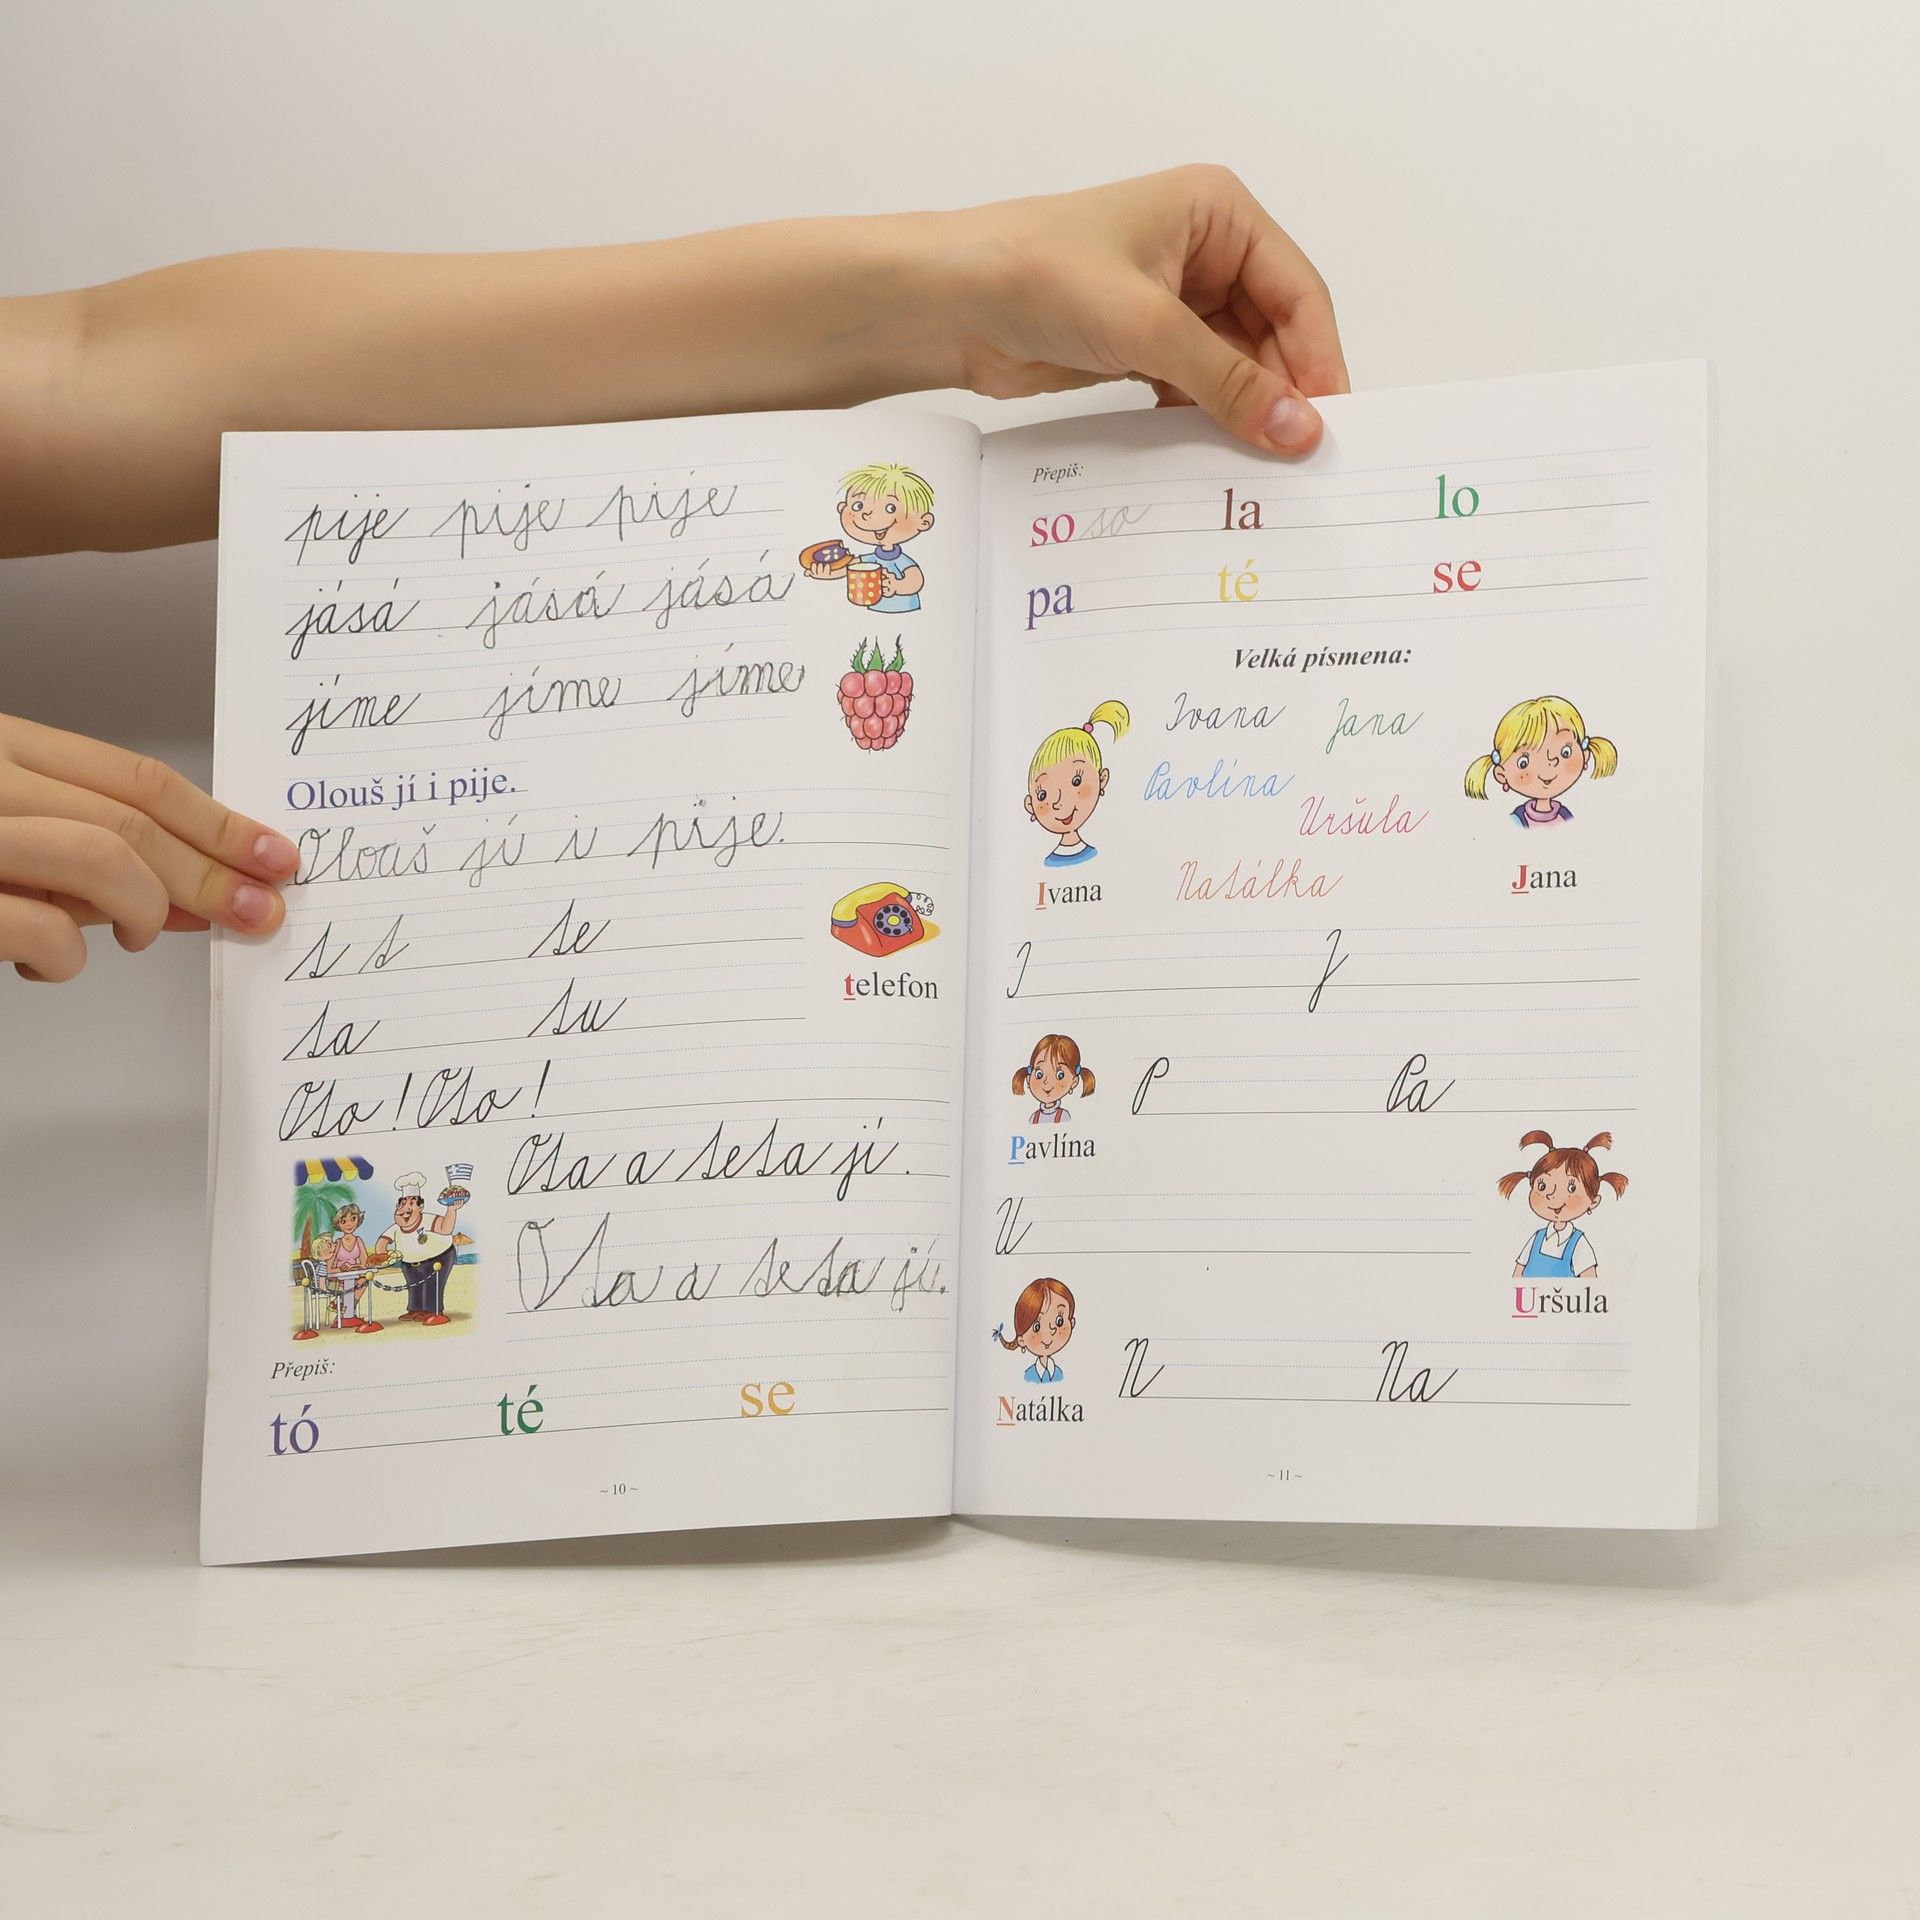 pije pije pije
jásá jásá jásá
jíme jíme jíme
Olouš jí i pije.
Olouš jí i pije.
t t te
telefon
ta tu
Oto! Oto!
Ota a teta jí.
Ota a teta jí.
Přepiš:
tó té se
~ 10 ~
Přepiš:
so so la lo
pa té se
Velká písmena:
Ivana Jana
Pavlína
Uršula
Natálka
Ivana
Jana
I J
P Pa
Pavlína
U
Uršula
N Na
Natálka
~ 11 ~